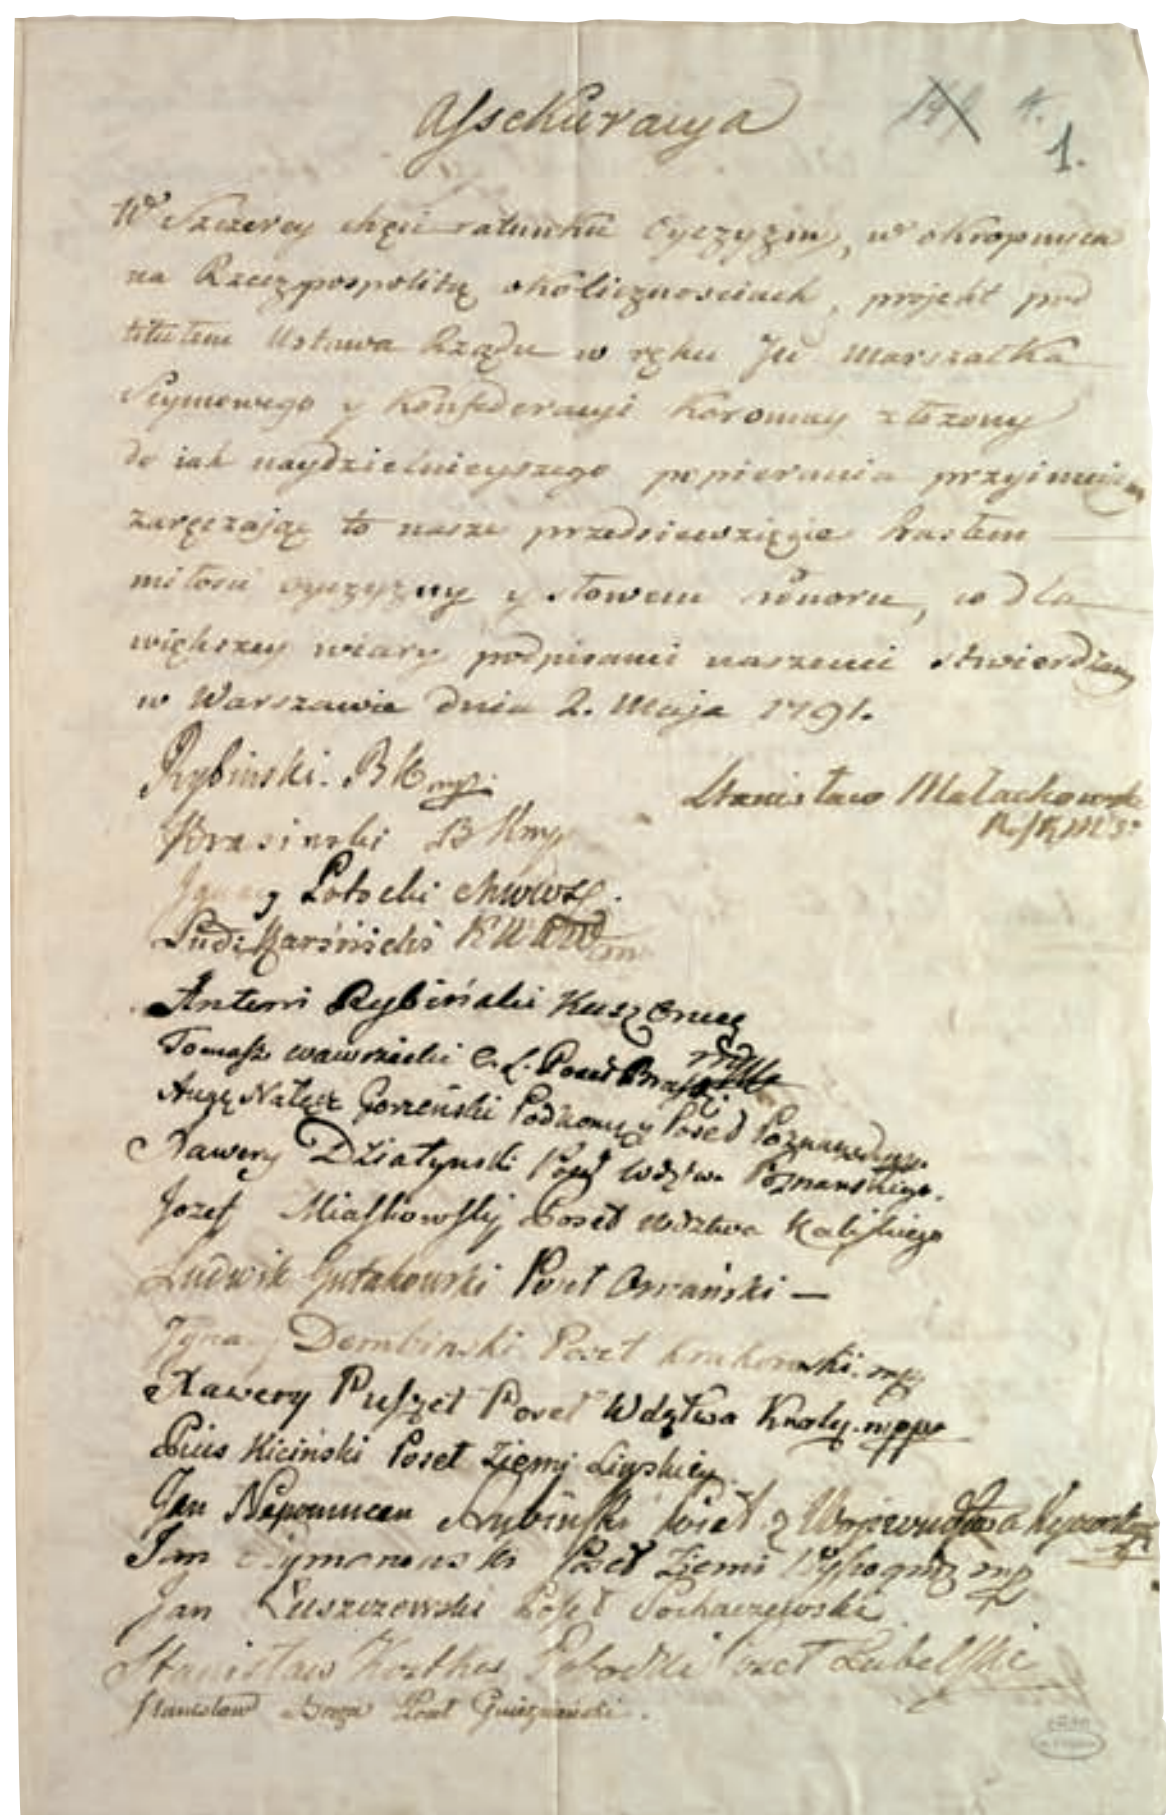 Assekuracya
4.
1.
W Szczerey chęci ratunku Oyczyzny, w okropnych
na Rzeczpospolitę okolicznościach, projekt pod
tytułem Ustawa Rządu w ręku JW Marszałka
Seymowego y Konfederacyi Koronney złożony
do iak naydzielnieyszego popierania przyimuiem
zaręczaiąc to nasze przedsiewzięcie hasłem
miłości oyczyzny y słowem honoru, co dla
większey wiary podpisami naszemi stwierdzamy
w Warszawie dnia 2. Maja 1791.
Rybinski. BK mp.
Stanisław Małachowski
Krasinski BK mp
Ignacy Potocki
Antoni Rybiński
Tomasz Wawrzecki Poseł
Nałęcz Gorzeński Podkomy y Poseł Poznański
Xawery Działynski Poseł Wdztwa Poznanskiego.
Jozef Miaskowsky Poseł Wdztwa Kaliskiego
Ludwik Gutakowski Poseł Orszański —
Ignacy Dembinski Poseł Krakowski. mp
Xawery Puszet Poseł Wdztwa
Pius Kiciński Poseł Ziemi Liwskiey
Jan Nepomucen Rybinski Poseł z Wojewodztwa
Jan Szymanowski Poseł Ziemi mp
Jan Łuszczewski Poseł Sochaczewski
Stanisław Kostka Potocki Poseł Lubelski
Stanisław Poseł Gnieznienski.